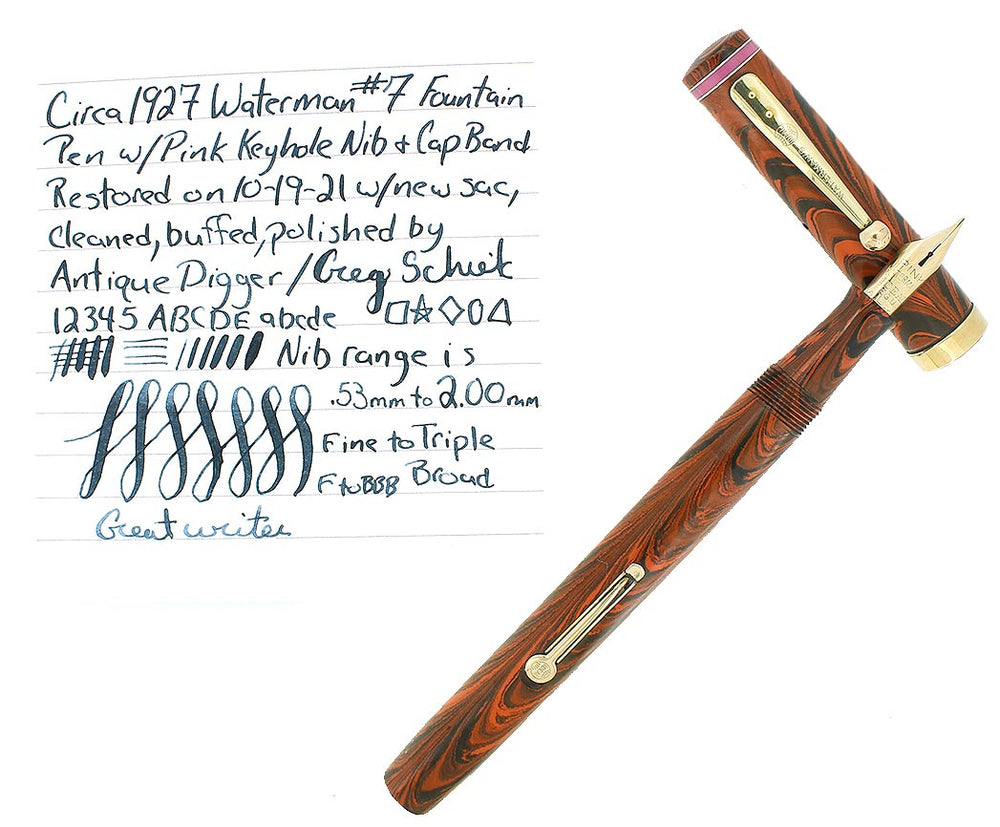 Circa 1927 Waterman #7 Fountain
Pen w/Pink Keyhole Nib & Cap Band
Restored on 10-19-21 w/new sac,
cleaned, buffed, polished by
Antique Digger / Greg
12345 ABCDE abcde
Nib range is
.53mm to 2.00mm
Fine to Triple
F to BBB Broad
Great writer
PINK